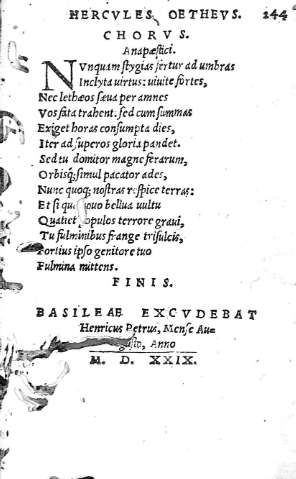 HERCVLES OETHEVS. 144
CHORVS.
Anapæstici.
NVnquam stygias fertur ad umbras
Inclyta uirtus: uiuite fortes,
Nec lethæos sæua per amnes
Vos fata trahent: sed cum summas
Exiget horas consumpta dies,
Iter ad superos gloria pandet.
Sed tu domitor magne ferarum,
Orbisq; simul pacator ades,
Nunc quoq; nostras respice terras:
Et si qua nouo bellua uultu
Quatiet populos terrore graui,
Tu fulminibus frange trisulcis,
Fortius ipso genitore tuo
Fulmina mittens.
FINIS.
BASILEAE EXCVDEBAT
Henricus Petrus, Mense Au=
gusto, Anno
M. D. XXIX.